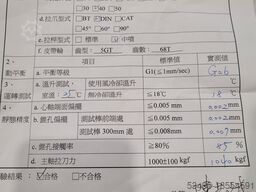 □30 □40 □50
d.拉爪型式 □BT □DIN □CAT
□45° □60° □90°
e.拉桿型式 □標準 □中噴
f.皮帶輪 齒型: 5GT 齒數: 68T
2、 項目 標準值 實測值
動平衡 a.平衡等級 G1(≦1mm/sec) G0.6
3、 a.溫升測試, 使用風冷卻溫升
運轉測試 室溫: 25℃ 無冷卻溫升 ≦18℃ 18 ℃
4、 a.心軸端面偏擺 ≦0.005 mm 0.002mm
靜態精度 b.錐孔偏擺 測試棒前端處 ≦0.005 mm
測試棒 300mm 處 ≦0.008 mm 0.007mm
c.錐孔接觸率 ≧80% 85 %
d.主軸拉刀力 1000±100 kgf 1040 kgf
驗結果: ☑合格 □不合格